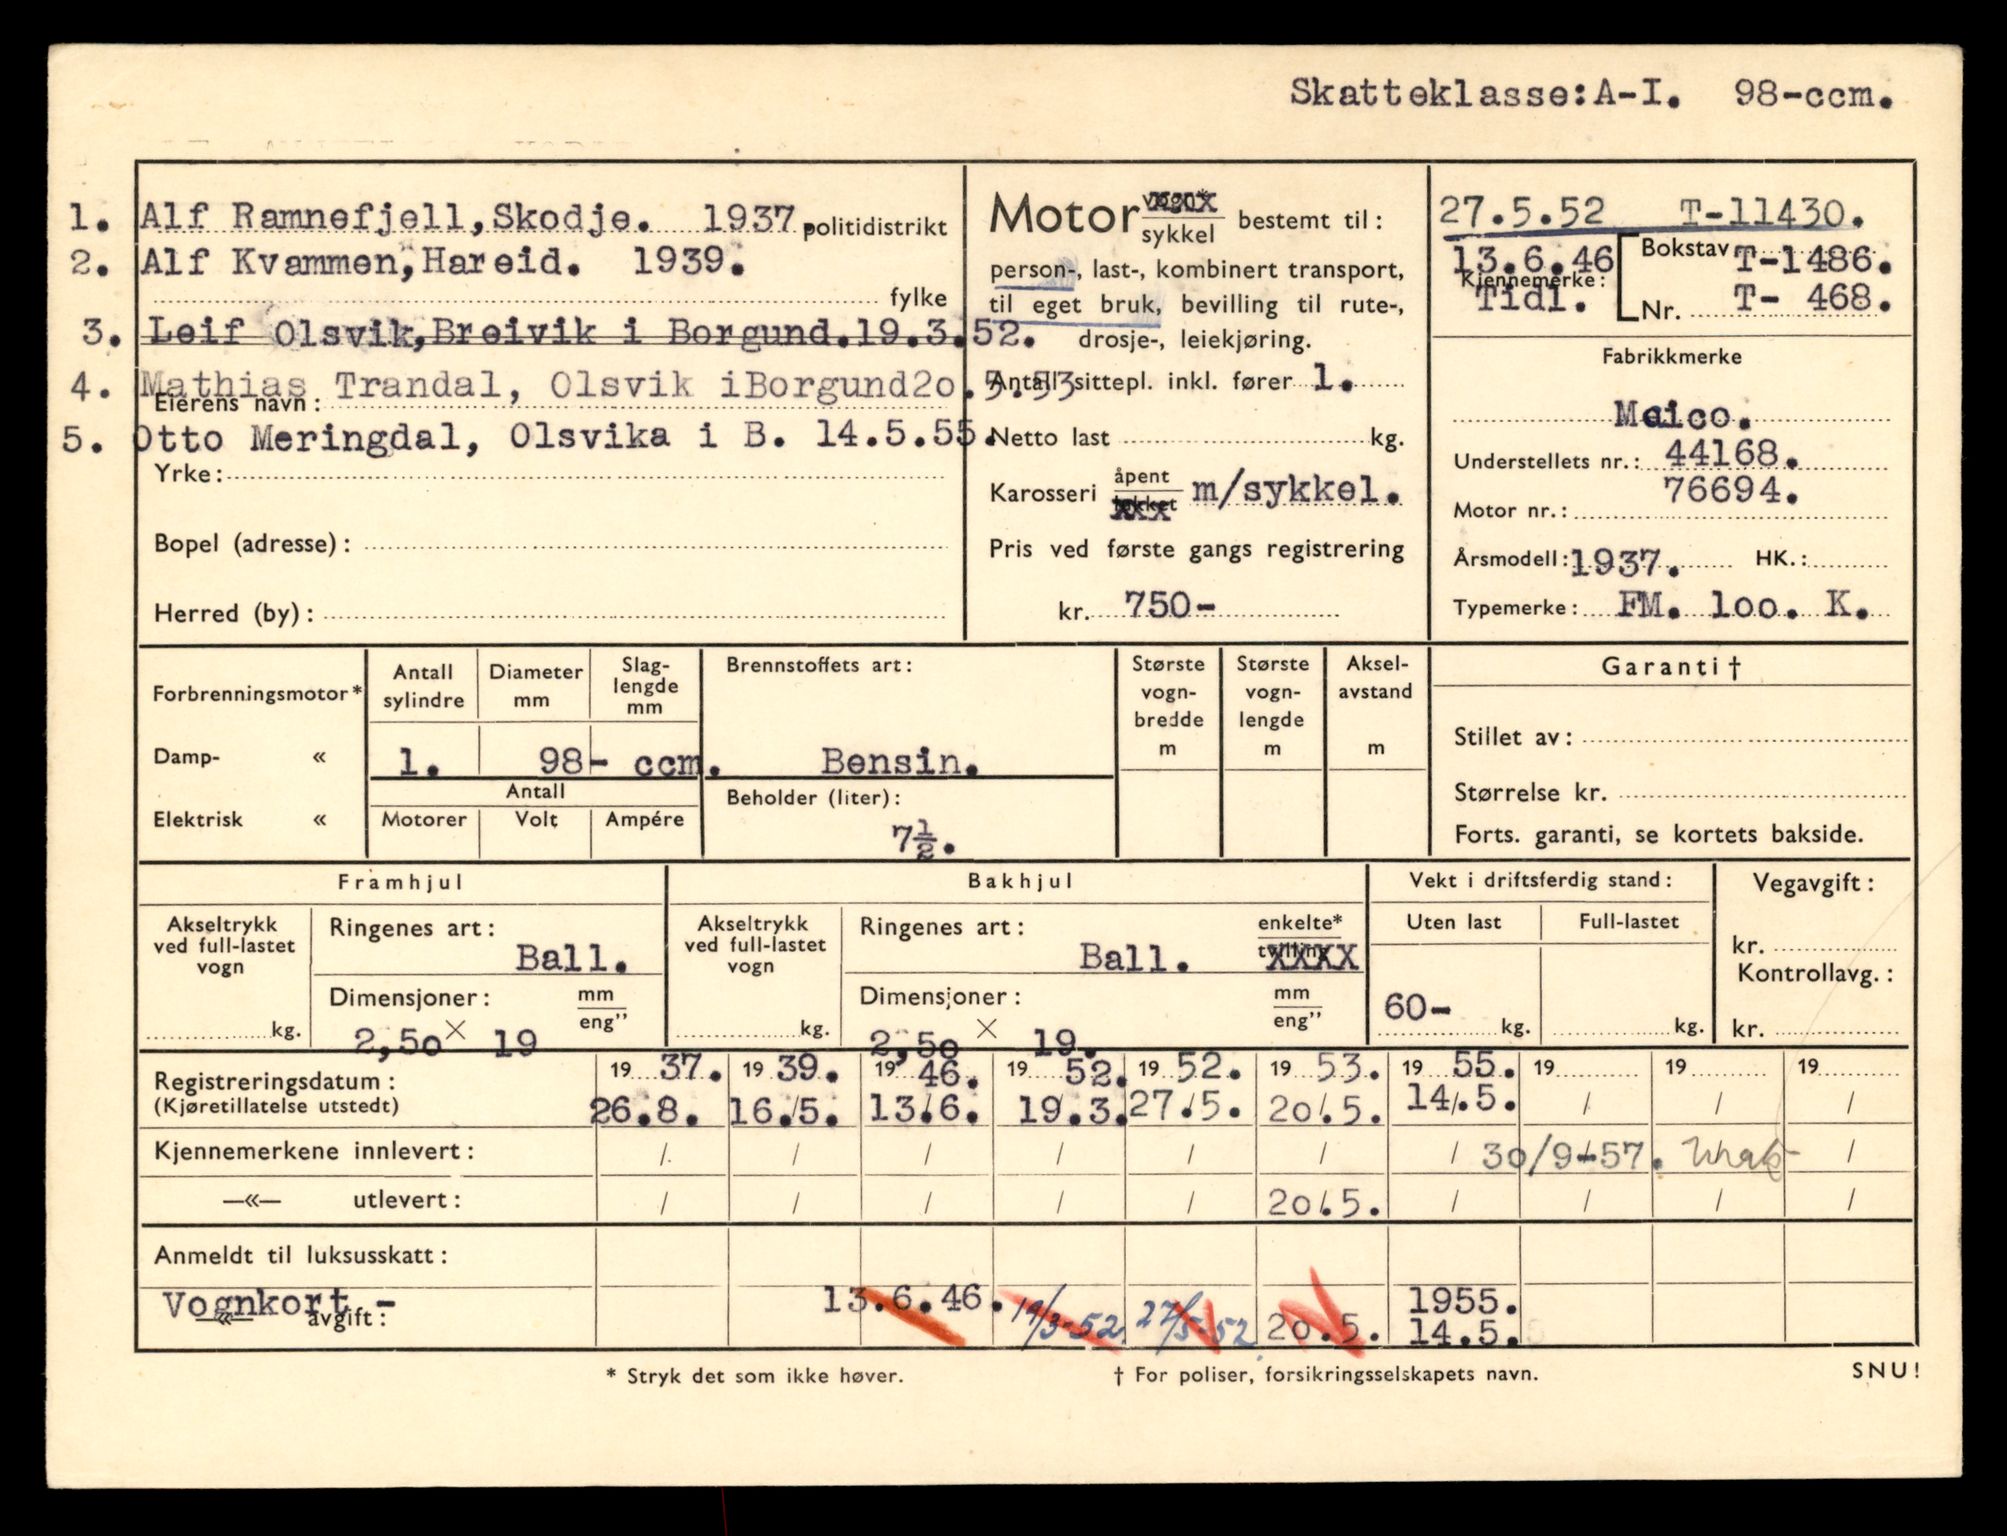 Skatteklasse:A-I. 98-ccm.
1. Alf Ramnefjell,Skodje. 1937 politidistrikt
2. Alf Kvammen,Hareid. 1939.
fylke
3. Leif Olsvik,Breivik i Borgund.19.3.52.
4. Mathias Trandal, Olsvik iBorgund2o.5.53
Eierens navn:
5. Otto Meringdal, Olsvika i B. 14.5.55.
Yrke:
Bopel (adresse):
Herred (by):
Motor vogn* sykkel bestemt til:
person-, last-, kombinert transport,
til eget bruk, bevilling til rute-,
drosje-, leiekjøring.
Antall sittepl. inkl. fører 1.
Netto last kg.
Karosseri åpent lukket m/sykkel.
Pris ved første gangs registrering
kr. 750-
27.5.52 T-11430.
13.6.46 Bokstav T-1486.
Kjennemerke:
Tidl. Nr. T- 468.
Fabrikkmerke
Maico.
Understellets nr.: 44168.
76694.
Motor nr.:
Årsmodell: 1937. HK.:
Typemerke: FM. loo. K.
Forbrenningsmotor*
Damp- «
Elektrisk «
Antall sylindre
Diameter mm
Slag-
lengde
mm
1. 98- ccm.
Antall
Motorer Volt Ampére
Brennstoffets art:
Bensin.
Beholder (liter):
7½.
Største
vogn-
bredde
m
Største
vogn-
lengde
m
Aksel-
avstand
m
Garanti †
Stillet av:
Størrelse kr.
Forts. garanti, se kortets bakside.
Framhjul
Akseltrykk
ved full-lastet
vogn
kg.
Ringenes art:
Ball.
Dimensjoner: mm eng”
2,5o × 19
Bakhjul
Akseltrykk
ved full-lastet
vogn
kg.
Ringenes art: enkelte* tvilling
Ball. XXXX
Dimensjoner: mm eng”
2,5o × 19.
Vekt i driftsferdig stand:
Uten last Full-lastet
60- kg. kg.
Vegavgift:
kr.
Kontrollavg.:
kr.
19 37. 19 39. 19 46. 19 52. 19 52. 19 53. 19 55. 19 19 19
Registreringsdatum:
(Kjøretillatelse utstedt) 26.8. 16./5. 13/.6. 19.3. 27./5. 20/.5. 14/.5. / / /
Kjennemerkene innlevert: / / / / / / / 30/9-57. /
—«— utlevert: / / / / / 20/.5. / / / /
Anmeldt til luksusskatt:
Vognkort - 13.6.46. 19/3-52. 27/5-52. 20.5. 1955.
—«— avgift: 14.5.
* Stryk det som ikke høver.
† For poliser, forsikringsselskapets navn.
SNU!